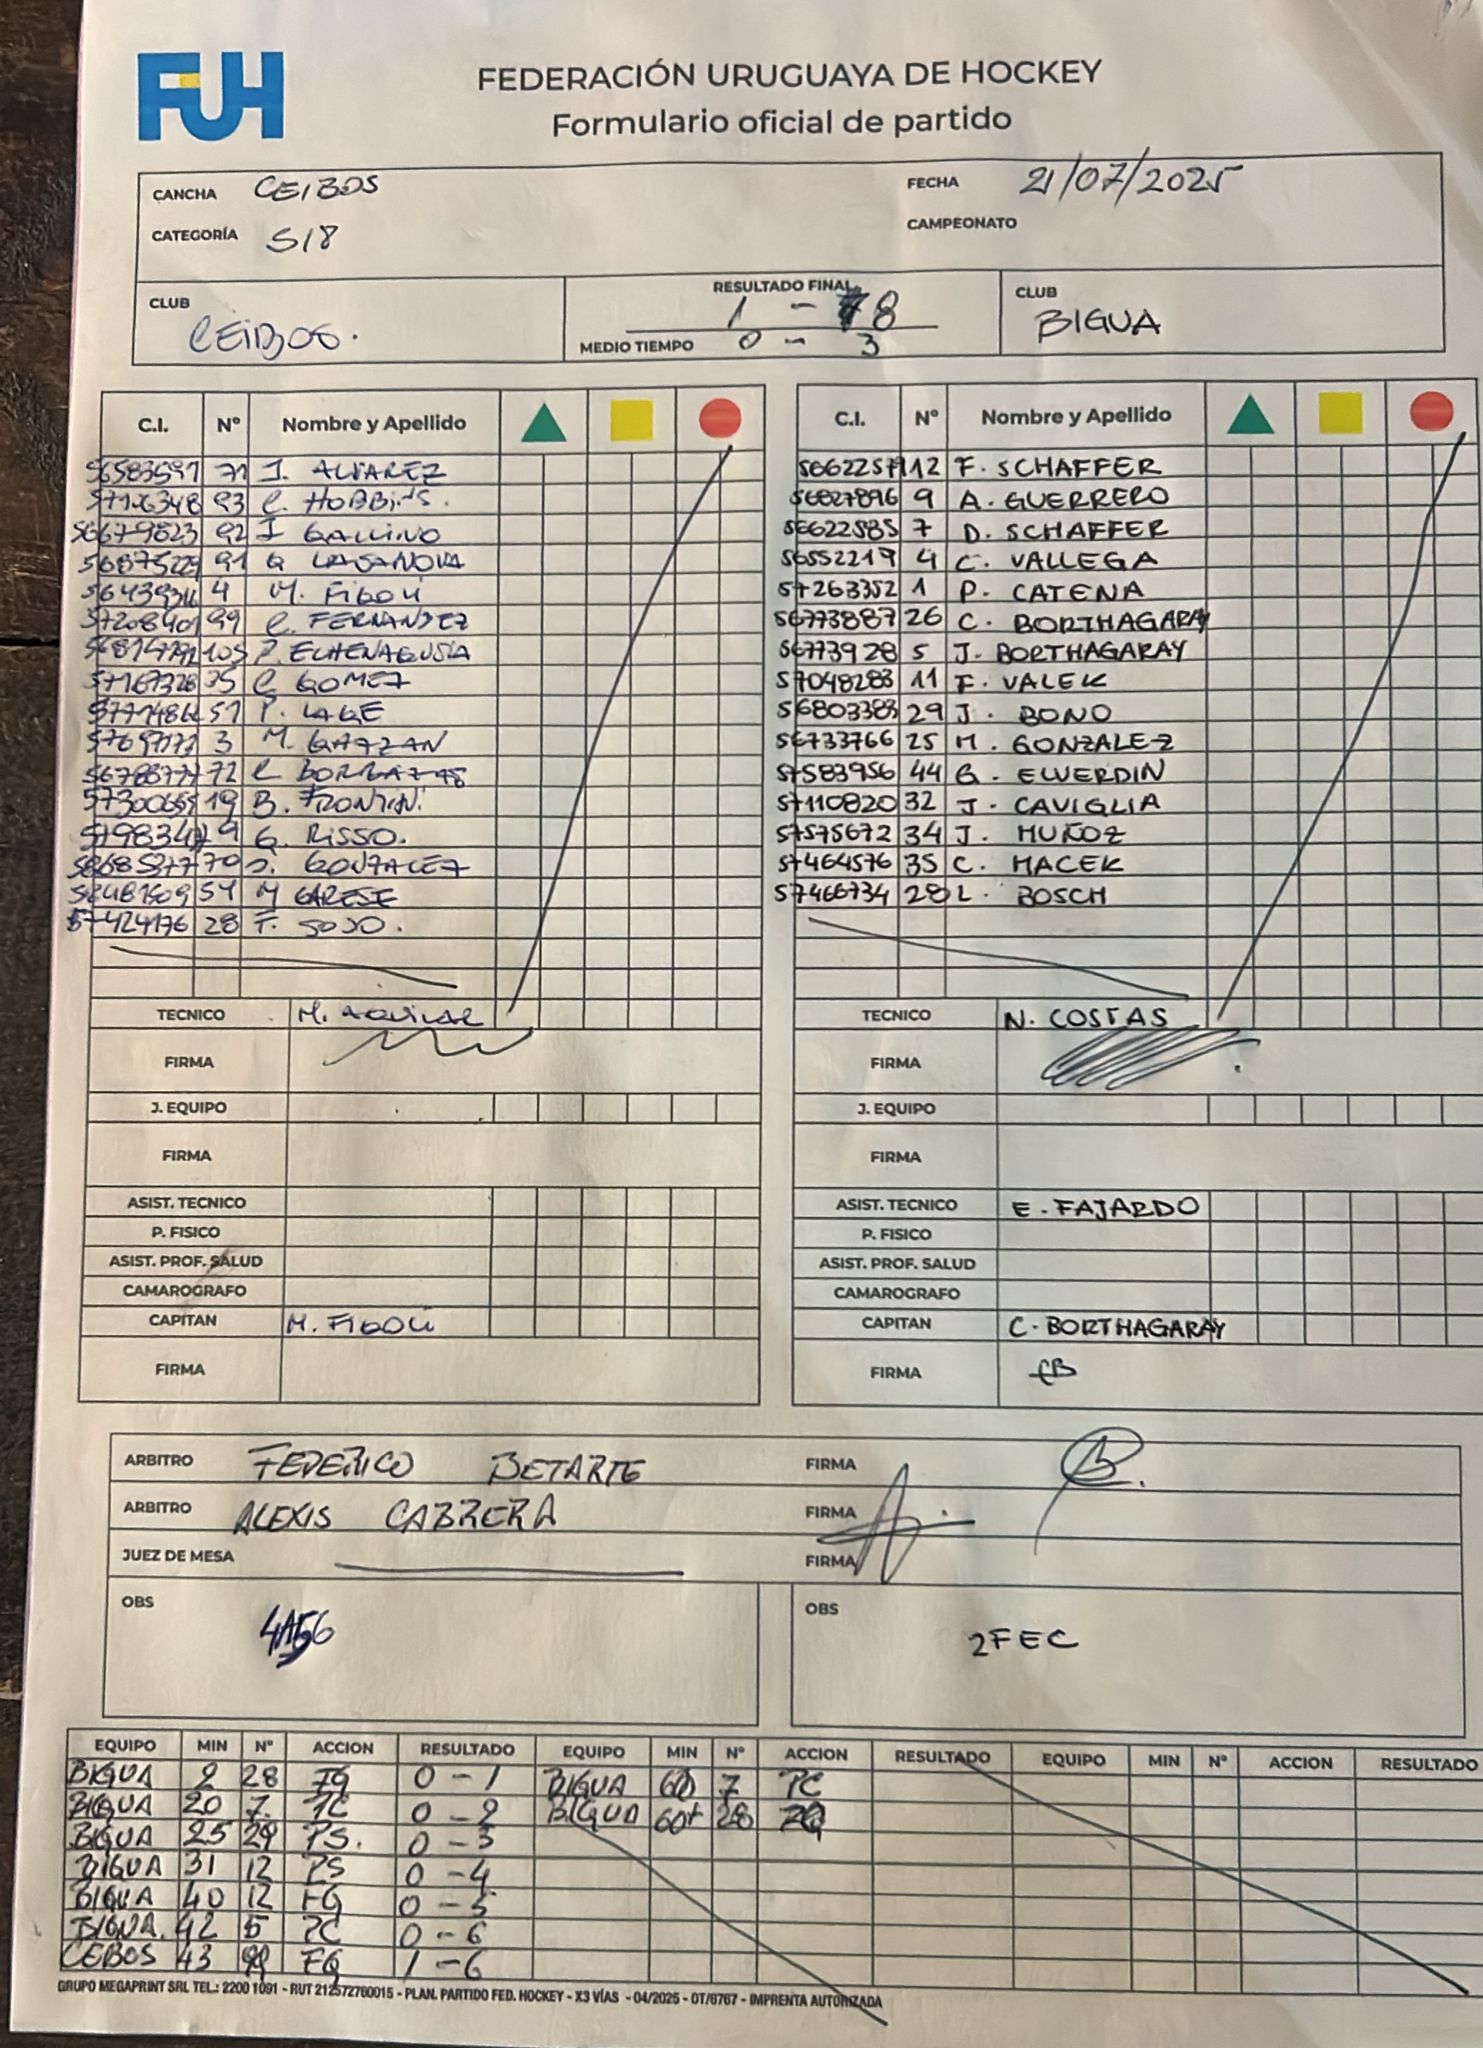 FUH
FEDERACIÓN URUGUAYA DE HOCKEY
Formulario oficial de partido
CANCHA CEIBOS FECHA 21/07/2025
CATEGORÍA S18 CAMPEONATO
CLUB CEIBOS. RESULTADO FINAL 1 - 8 CLUB BIGUA
MEDIO TIEMPO 0 - 3
C.I. Nº Nombre y Apellido C.I. Nº Nombre y Apellido
56583591 71 J. ALVAREZ 12 F. SCHAFFER
93 C. HOBBINS. 56827896 9 A. GUERRERO
56679823 92 J GALLINO 56622585 7 D. SCHAFFER
91 56552219 4 C. VALLEGA
4 M. FIGOLI 57263352 1 P. CATENA
57208401 99 C. FERNANDEZ 56773887 26 C. BORTHAGARAY
105 P. ECHENAGUSIA 56773928 5 J. BORTHAGARAY
57167328 35 C GOMEZ 57048283 11 F. VALEK
51 P. LAGE 56803383 29 J. BONO
3 M. GAZZAN 56733766 25 M. GONZALEZ
72 57583956 44 B. ELVERDIN
19 B. FRONTINI 57110820 32 J. CAVIGLIA
9 G. RISSO. 57575672 34 J. MUÑOZ
70 GONZALEZ 57464576 35 C. MACEK
M GARESE 57466734 28 L. BOSCH
57424176 28 F. SOJO.
TECNICO M. AGUILAR TECNICO N. COSTAS
FIRMA FIRMA
J. EQUIPO J. EQUIPO
FIRMA FIRMA
ASIST. TECNICO ASIST. TECNICO E. FAJARDO
P. FISICO P. FISICO
ASIST. PROF. SALUD ASIST. PROF. SALUD
CAMAROGRAFO CAMAROGRAFO
CAPITAN M. FIGOLI CAPITAN C. BORTHAGARAY
FIRMA FIRMA CB
ARBITRO FEDERICO BETARTE FIRMA
ARBITRO ALEXIS CABRERA FIRMA
JUEZ DE MESA FIRMA
OBS OBS
2FEC
EQUIPO MIN Nº ACCION RESULTADO EQUIPO MIN Nº ACCION RESULTADO EQUIPO MIN Nº ACCION RESULTADO
BIGUA 2 28 FG 0 - 1 BIGUA 60 7 PC
BIGUA 20 7. PC 0 - 2 BIGUA 60+ 28
BIGUA 25 29 PS. 0 - 3
BIGUA 31 12 PS 0 - 4
BIGUA 40 12 FG 0 - 5
BIGUA. 42 5 PC 0 - 6
CEBOS 43 99 FG 1 - 6
GRUPO MEGAPRINT SRL TEL.: 2200 1091 - RUT 212572760015 - PLAN. PARTIDO FED. HOCKEY - X3 VÍAS - 04/2025 - OT/6767 - IMPRENTA AUTORIZADA